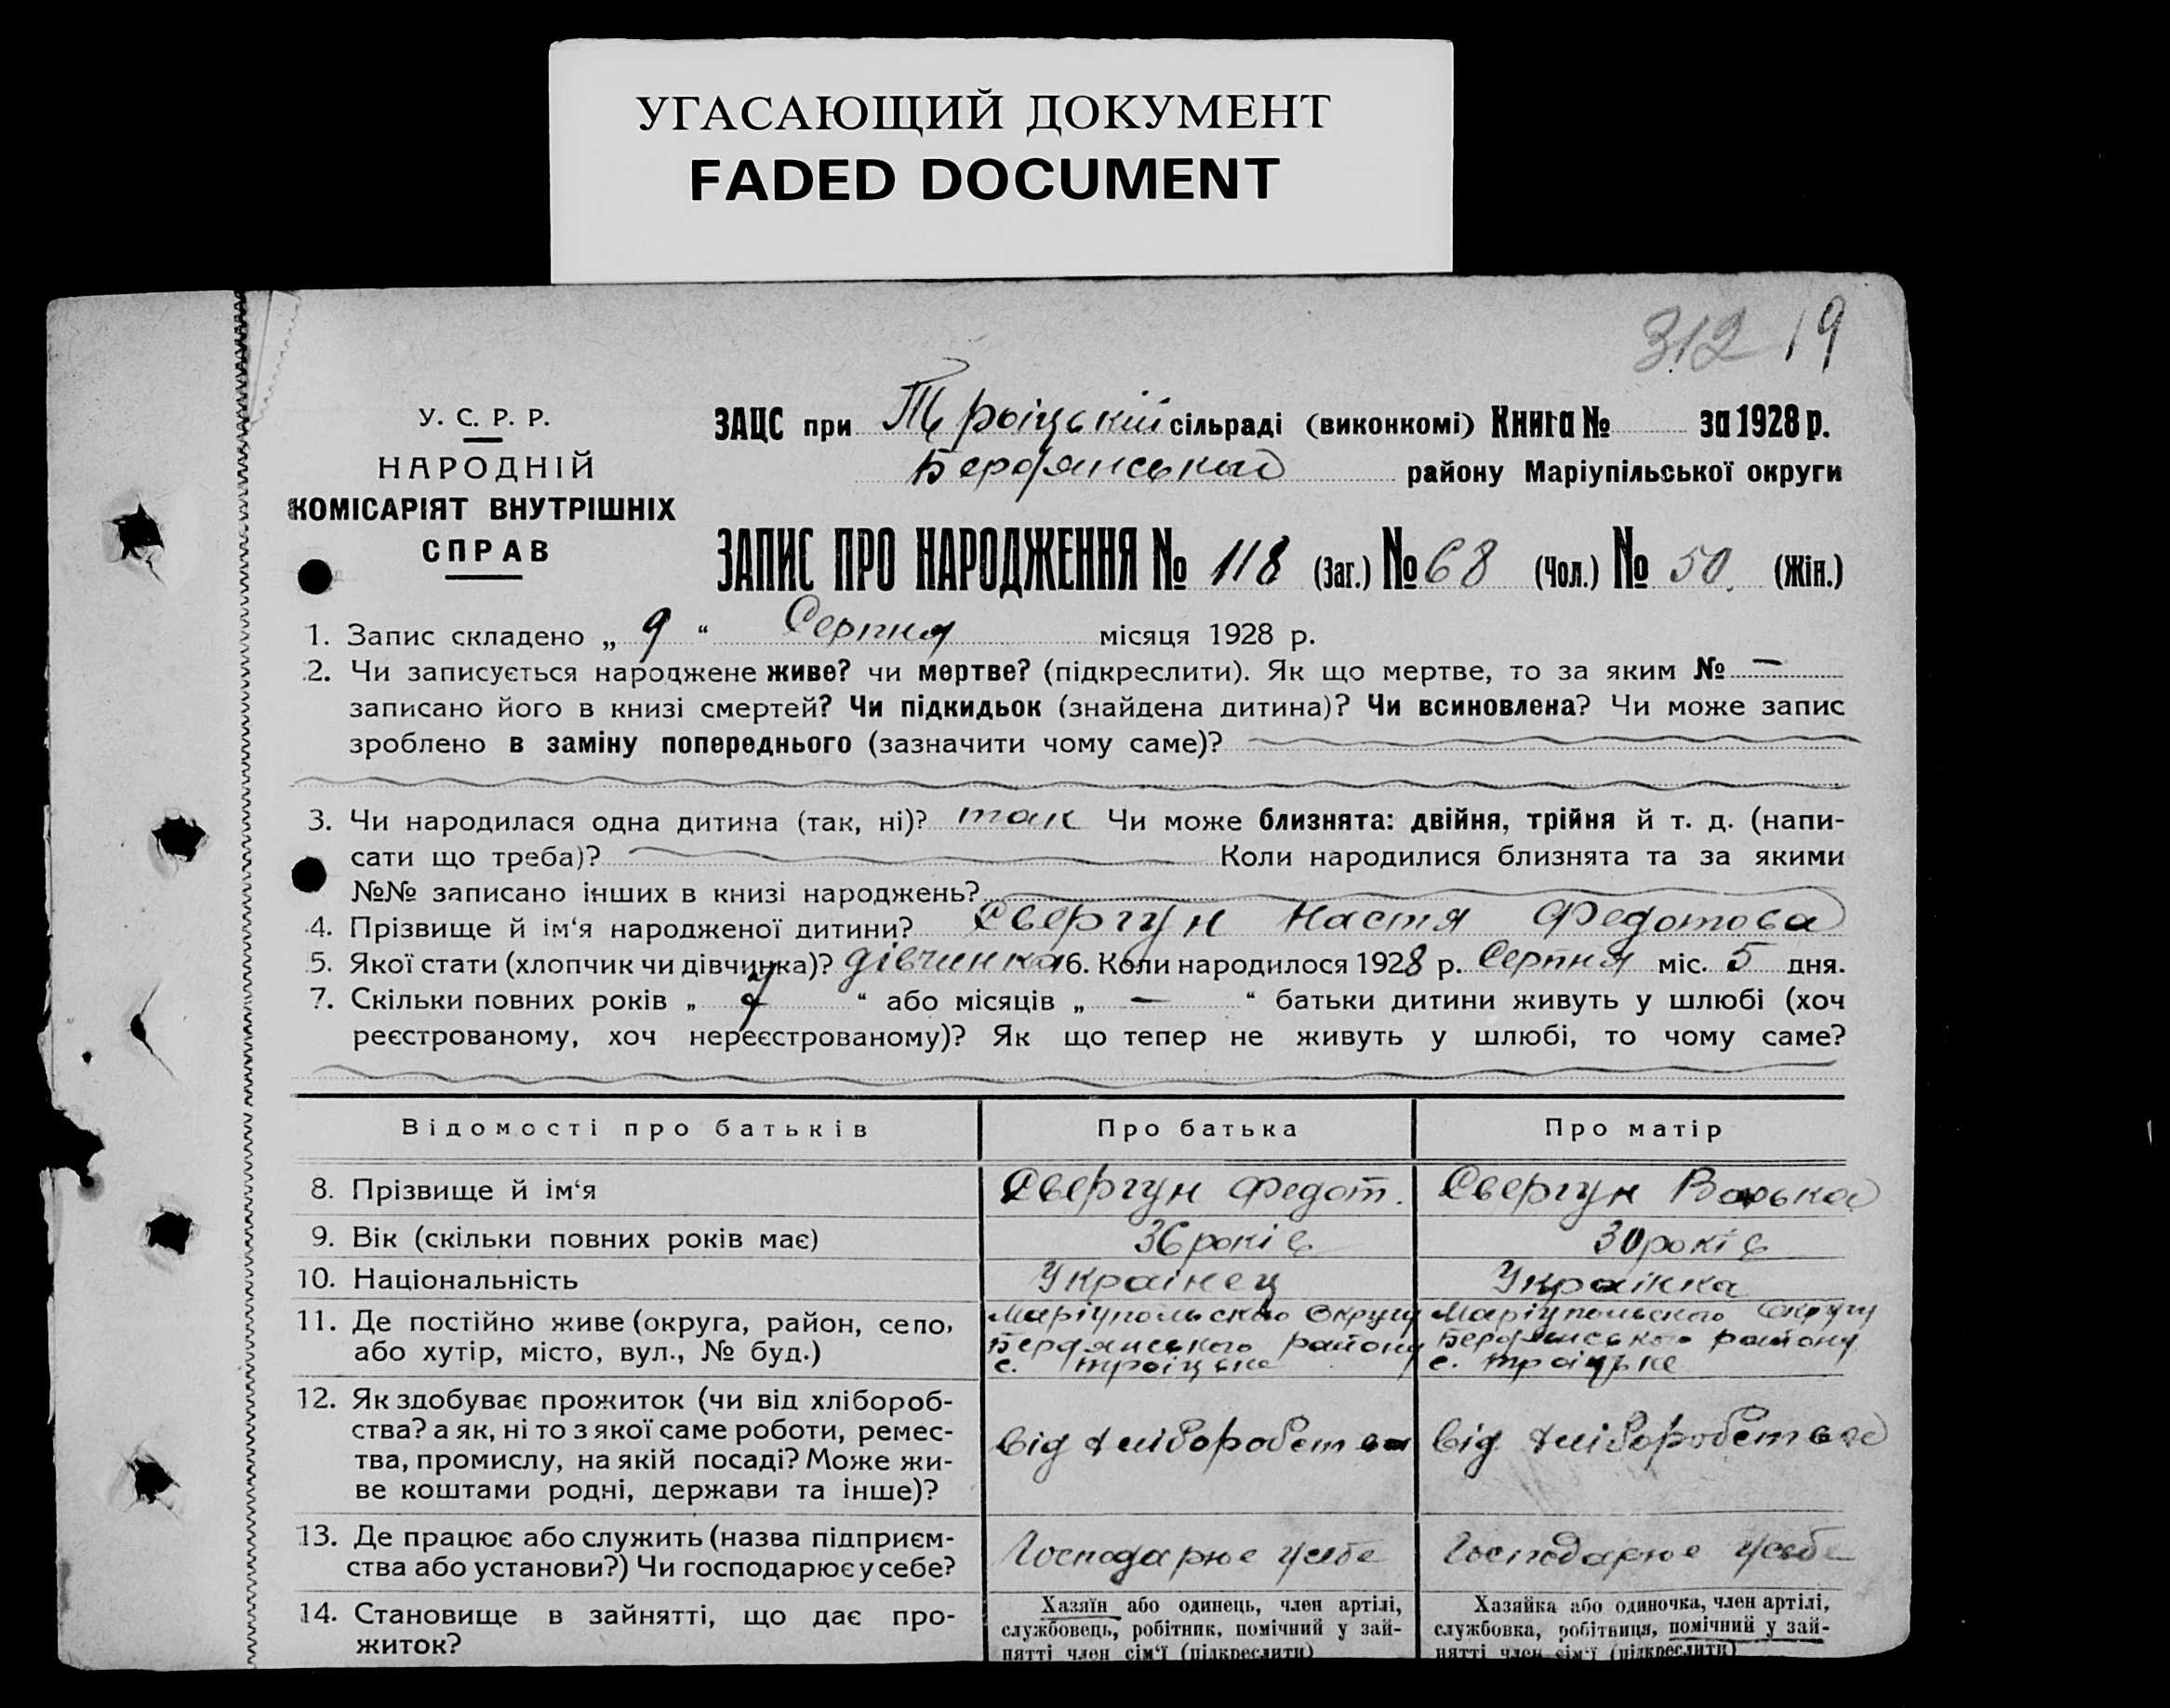 УГАСАЮЩИЙ ДОКУМЕНТ
FADED DOCUMENT
312 19
У. С. Р. Р.
НАРОДНІЙ
КОМІСАРІЯТ ВНУТРІШНІХ
СПРАВ
ЗАЦС при Троіцькій сільраді (виконкомі) Книга № за 1928 р.
району Маріупільської округи
ЗАПИС ПРО НАРОДЖЕННЯ № 118 (Заг.) № 68 (Чол.) № 50 (Жін.)
1. Запис складено „ 9 “ Серпня місяця 1928 р.
2. Чи записується народжене живе? чи мертве? (підкреслити). Як що мертве, то за яким № —
записано його в книзі смертей? Чи підкидьок (знайдена дитина)? Чи всиновлена? Чи може запис
зроблено в заміну попереднього (зазначити чому саме)?
3. Чи народилася одна дитина (так, ні)? так Чи може близнята: двійня, трійня й т. д. (напи-
сати що треба)? Коли народилися близнята та за якими
№№ записано інших в книзі народжень?
4. Прізвище й ім‘я народженої дитини? Свергун Настя Федотова
5. Якої стати (хлопчик чи дівчинка)? дівчинка 6. Коли народилося 1928 р. Серпня міс. 5 дня.
7. Скільки повних років „ “ або місяців „ — “ батьки дитини живуть у шлюбі (хоч
реєстрованому, хоч нереєстрованому)? Як що тепер не живуть у шлюбі, то чому саме?
Відомості про батьків Про батька Про матір
8. Прізвище й ім‘я Свергун Федот. Свергун
9. Вік (скільки повних років має) 36 років 30 років
10. Національність Украінец Украінка
11. Де постійно живе (округа, район, село, Маріупольского Округу Маріупольского Округу
або хутір, місто, вул., № буд.) Бердянського району Бердянського району
с. Троіцьке с. Троіцьке
12. Як здобуває прожиток (чи від хлібороб-
ства? а як, ні то з якої саме роботи, ремес- від хліборобства від хліборобства
тва, промислу, на якій посаді? Може жи-
ве коштами родні, держави та інше)?
13. Де працює або служить (назва підприєм- Господарює усебе Господарює усебе
ства або установи?) Чи господарює у себе?
14. Становище в зайнятті, що дає про- Хазяїн або одинець, член артілі, Хазяйка або одиночка, член артілі,
житок? службовець, робітник, помічний у зай- службовка, робітниця, помічний у зай-
нятті член сім‘ї (підкреслити) нятті член сім‘ї (підкреслити)